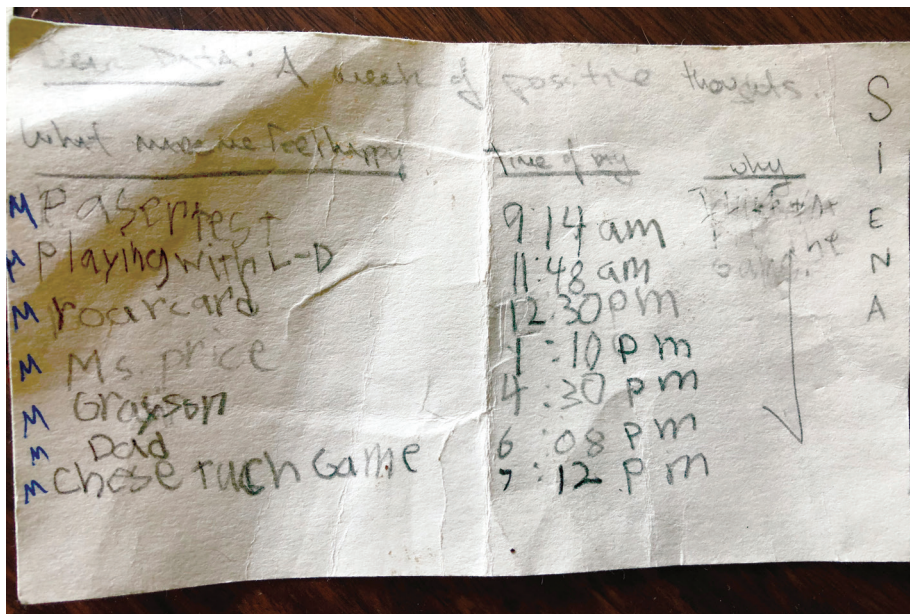 Dear Data: A week of positive thoughts.
What makes me feel happy Time of day why
M Pasertest 9:14 am I like that
M playing with L-D 11:48 am
M roarcard 12:30 pm
M Ms price 1:10 pm
M Grayson 4:30 pm
M Dad 6:08 pm
M Chese tuch Game 7:12 pm
SiENA